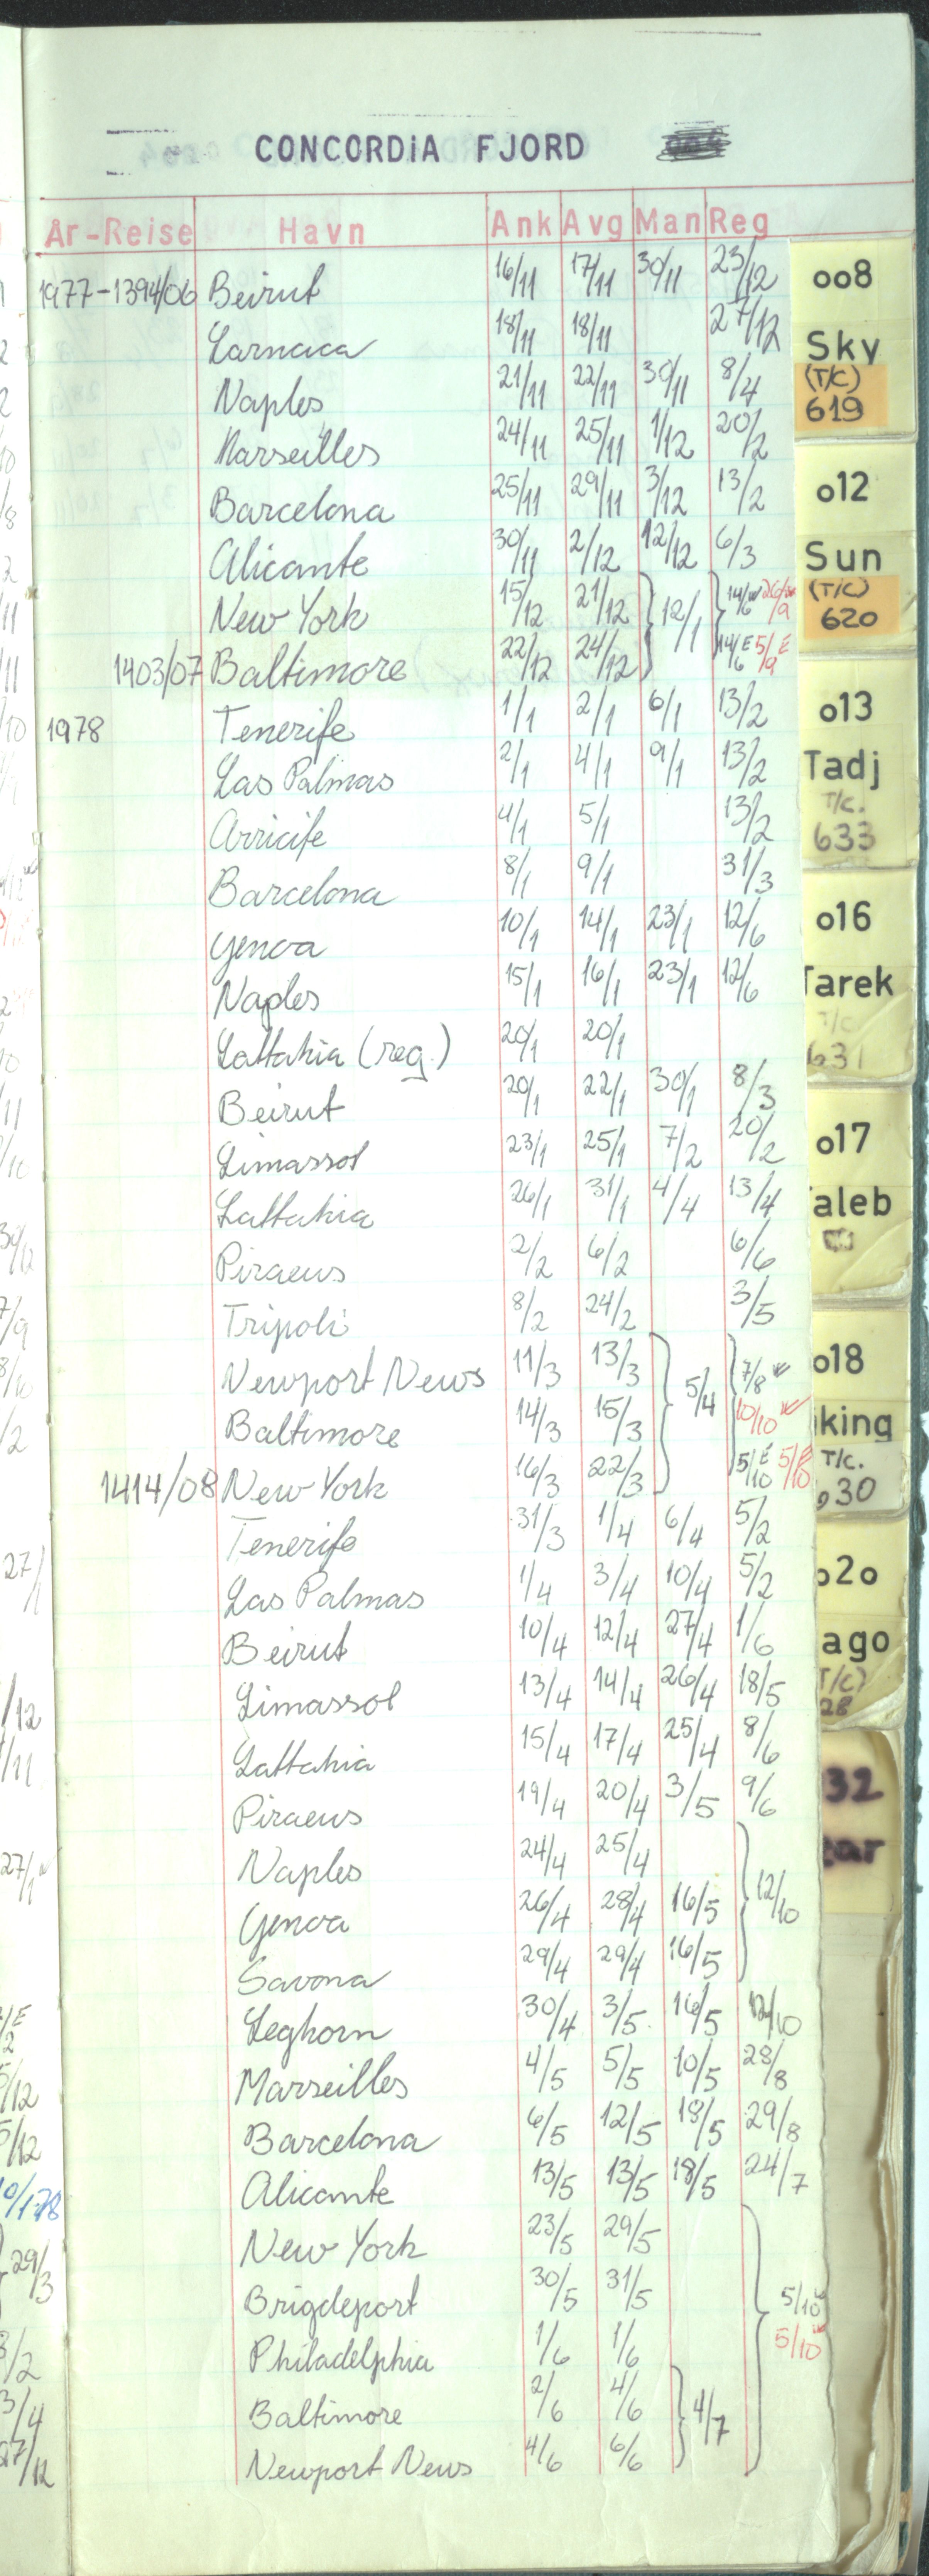 CONCORDIA FJORD
År-Reise Havn Ank Avg Man Reg
1977-1394/06 Beirut 16/11 17/11 30/11 23/12
Larnaca 18/11 18/11 27/12
Naples 21/11 22/11 30/11 8/4
Marseilles 24/11 25/11 1/12 20/2
Barcelona 25/11 29/11 3/12 13/2
Alicante 30/11 2/12 12/12 6/3
New York 15/12 21/12 12/1 14/6 W 26/9 W
1403/07 Baltimore 22/12 24/12 14/6 E 5/9 E
1978 Tenerife 1/1 2/1 6/1 13/2
Las Palmas 2/1 4/1 9/1 13/2
Arricife 4/1 5/1 13/2
Barcelona 8/1 9/1 31/3
Genoa 10/1 14/1 23/1 12/6
Naples 15/1 16/1 23/1 12/6
Lattakia (reg.) 20/1 20/1
Beirut 20/1 22/1 30/1 8/3
Limassol 23/1 25/1 7/2 20/2
Lattakia 26/1 31/1 4/4 13/4
Piraeus 2/2 6/2 6/6
Tripoli 8/2 24/2 3/5
Newport News 11/3 13/3 5/4 7/8 W
Baltimore 14/3 15/3 10/10 W
1414/08 New York 16/3 22/3 5/10 E 5/10 E
Tenerife 31/3 1/4 6/4 5/2
Las Palmas 1/4 3/4 10/4 5/2
Beirut 10/4 12/4 27/4 1/6
Limassol 13/4 14/4 26/4 18/5
Lattakia 15/4 17/4 25/4 8/6
Piraeus 19/4 20/4 3/5 9/6
Naples 24/4 25/4 12/10
Genoa 26/4 28/4 16/5
Savona 29/4 29/4 16/5
Leghorn 30/4 3/5 16/5 12/10
Marseilles 4/5 5/5 10/5 28/8
Barcelona 6/5 12/5 18/5 29/8
Alicante 13/5 13/5 18/5 24/7
New York 23/5 29/5
Brigdeport 30/5 31/5 5/10 W
Philadelphia 1/6 1/6 5/10 W
Baltimore 2/6 4/6 4/7
Newport News 4/6 6/6
oo8
Sky
(T/C)
619
o12
Sun
(T/C)
620
o13
Tadj
T/C.
633
o16
Tarek
T/C
631
o17
aleb
o18
king
T/C.
30
o2o
ago
T/C)
28
32